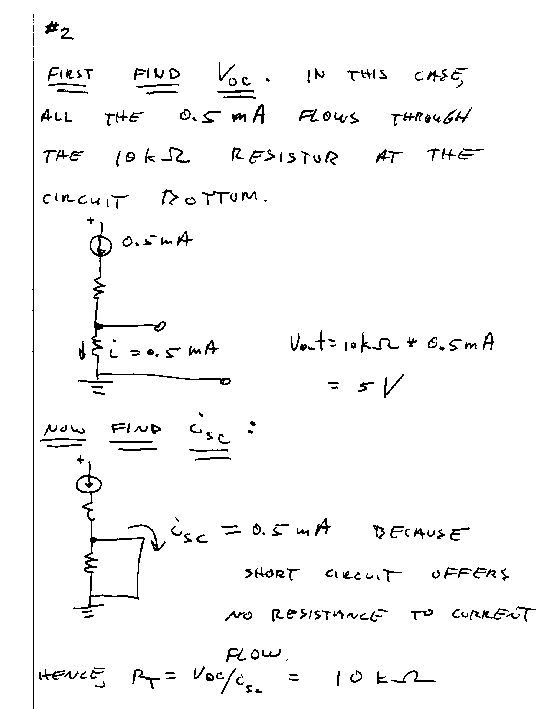 #2
FIRST FIND Voc. IN THIS CASE,
ALL THE 0.5 mA FLOWS THROUGH
THE 10kΩ RESISTOR AT THE
CIRCUIT BOTTOM.
+
0.5mA
i = 0.5 mA
Vout = 10kΩ * 0.5mA
= 5V
NOW FIND isc :
+
isc = 0.5 mA BECAUSE
SHORT CIRCUIT OFFERS
NO RESISTANCE TO CURRENT
FLOW.
HENCE, RT = Voc/isc = 10kΩ